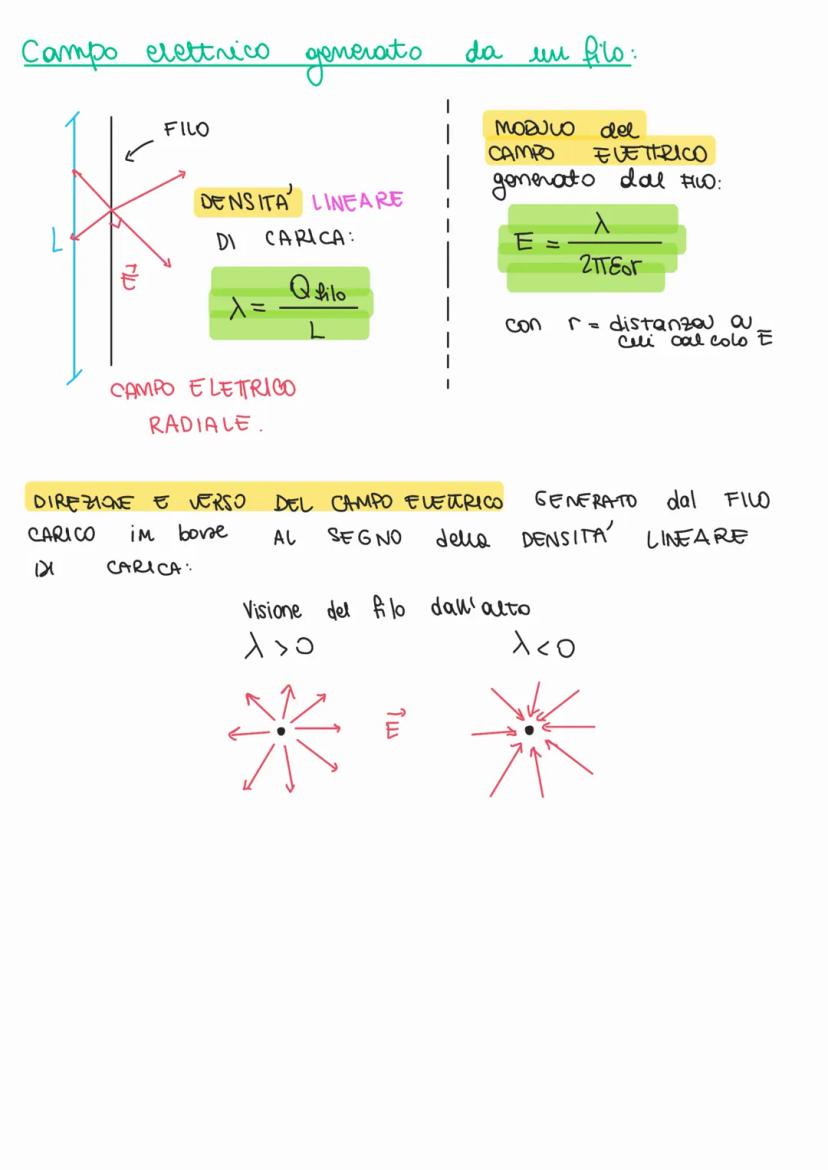 Campo elettrico generato da un filo:
FILO
L
E⃗
DENSITA' LINEARE
DI CARICA:
λ = Q filo / L
CAMPO ELETTRICO
RADIALE.
MODULO del
CAMPO ELETTRICO
generato dal FILO:
E = λ / 2πε₀r
con r = distanza a
cui calcolo E
DIREZIONE E VERSO DEL CAMPO ELETTRICO GENERATO dal FILO
CARICO in base AL SEGNO della DENSITA' LINEARE
DI CARICA:
Visione del filo dall'alto
λ > 0 λ < 0
E⃗